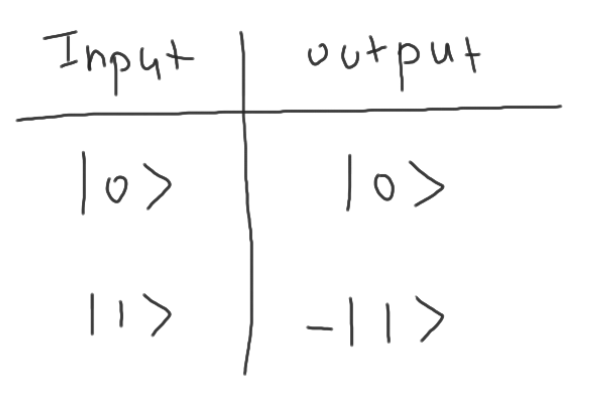 Input output
|0> |0>
|1> -|1>